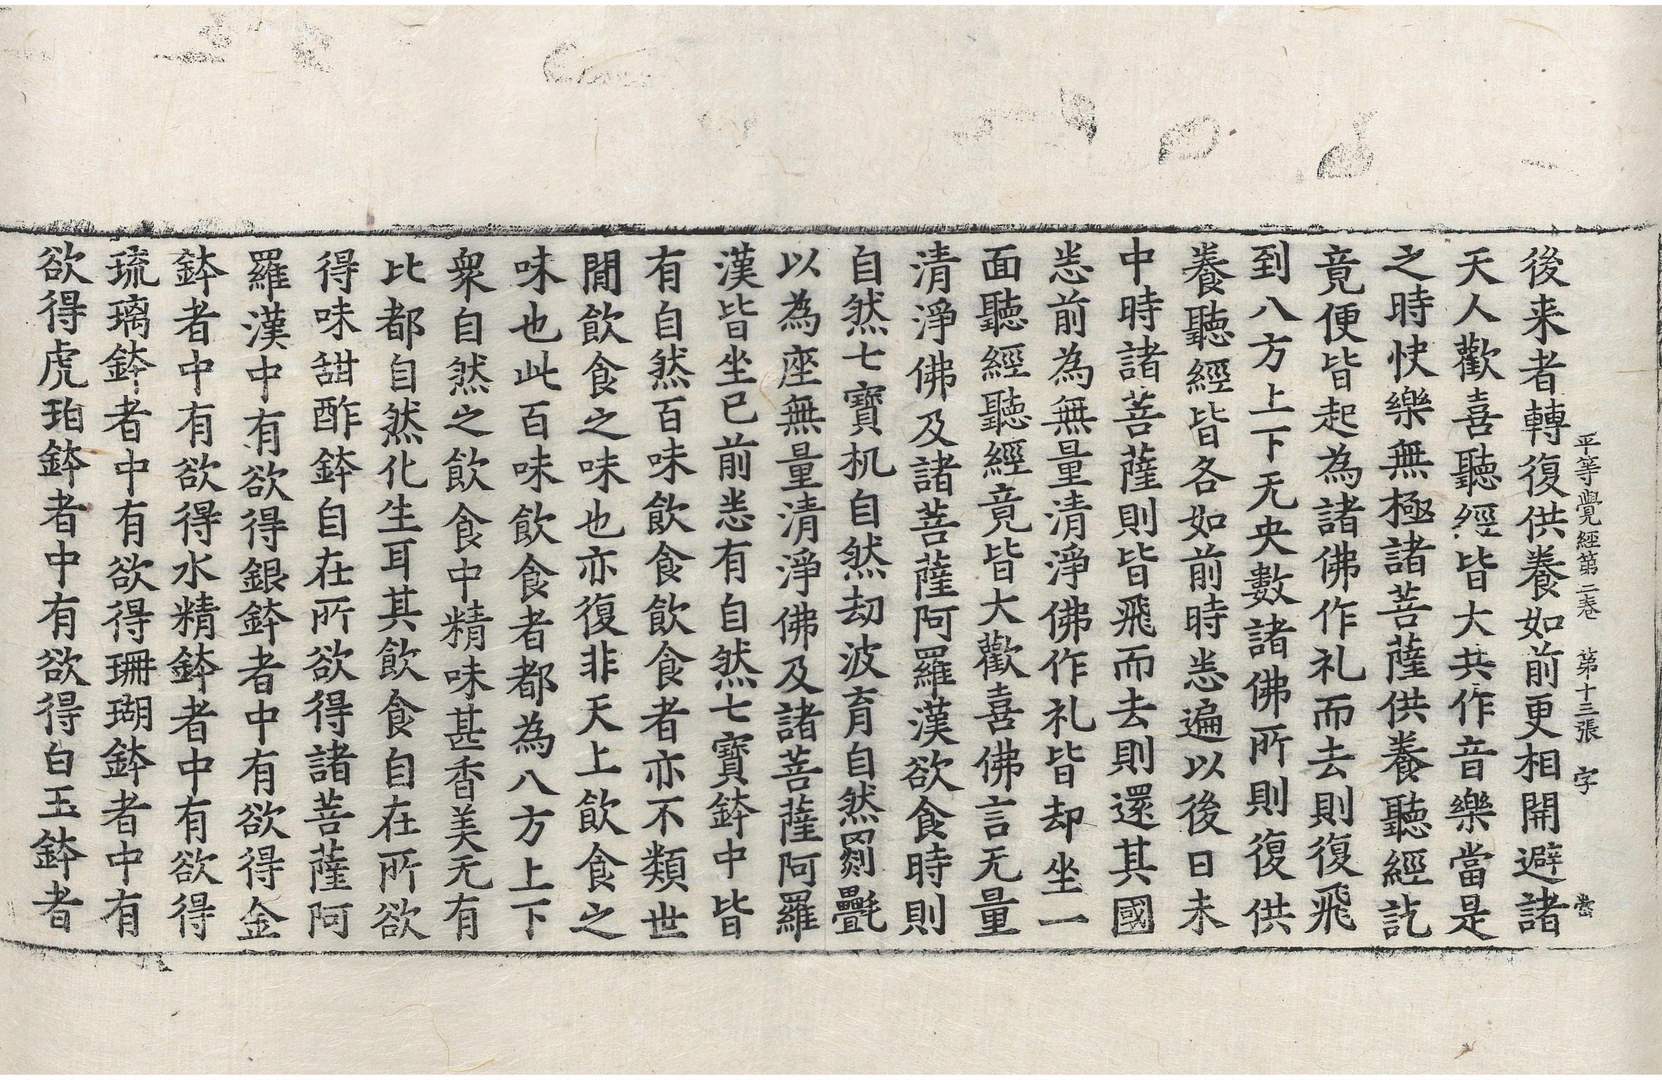 平等覺經第二卷　第十三張　字
後来者轉復供養如前更相開避諸
天人歡喜聽經皆大共作音樂當是
之時快樂無極諸菩薩供養聽經訖
竟便皆起為諸佛作礼而去則復飛
到八方上下无央數諸佛所則復供
養聽經皆各如前時悉遍以後日未
中時諸菩薩則皆飛而去則還其國
悉前為無量清淨佛作礼皆却坐一
面聽經聽經竟皆大歡喜佛言无量
清淨佛及諸菩薩阿羅漢欲食時則
自然七寶机自然劫波育自然罽㲲
以為座無量清淨佛及諸菩薩阿羅
漢皆坐已前悉有自然七寶鉢中皆
有自然百味飲食飲食者亦不類世
閒飲食之味也亦復非天上飲食之
味也此百味飲食者都為八方上下
衆自然之飲食中精味甚香美无有
比都自然化生耳其飲食自在所欲
得味甜酢鉢自在所欲得諸菩薩阿
羅漢中有欲得銀鉢者中有欲得金
鉢者中有欲得水精鉢者中有欲得
琉璃鉢者中有欲得珊瑚鉢者中有
欲得虎珀鉢者中有欲得白玉鉢者